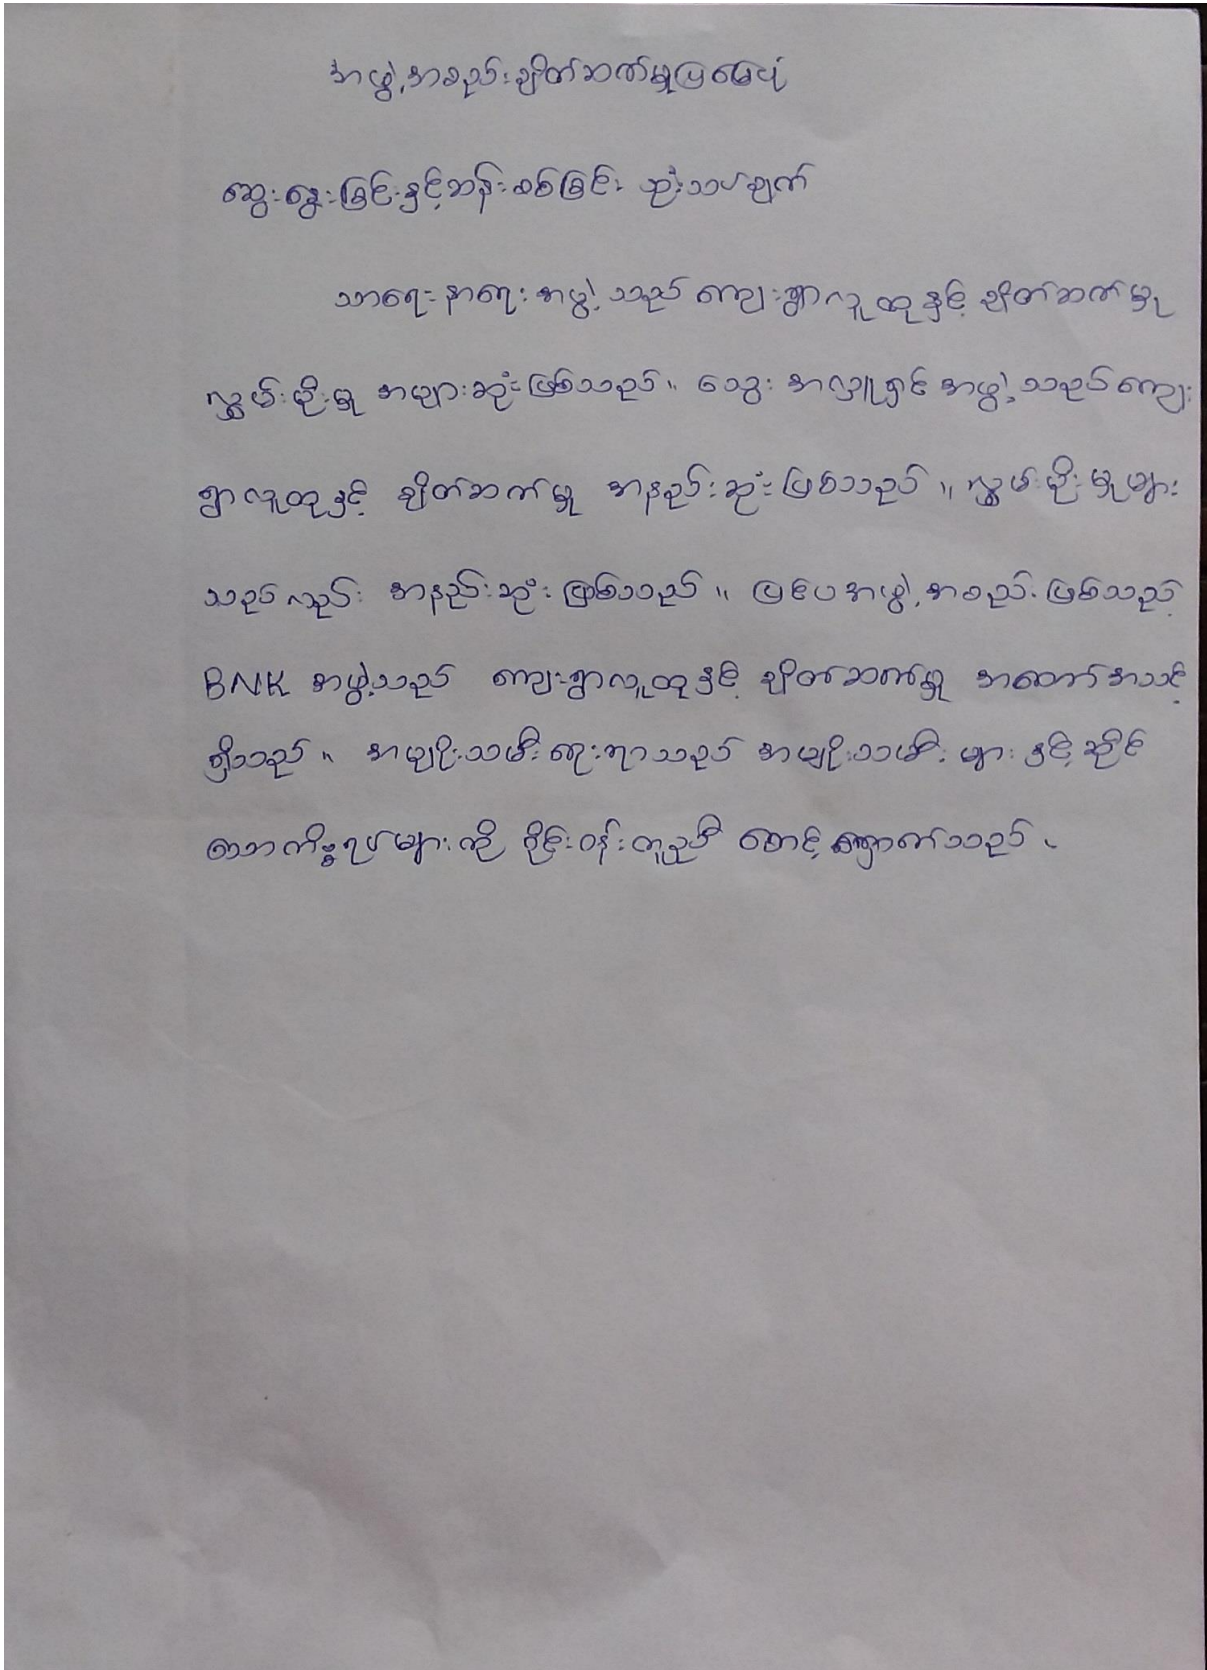 အဖွဲ့အစည်းချိတ်ဆက်မှုပြမြေပုံ
ဆွေးနွေးခြင်းနှင့်ဆန်းစစ်ခြင်း သုံးသပ်ချက်
သာရေးနာရေးအဖွဲ့သည် ကျေးရွာလူထုနှင့် ချိတ်ဆက်မှု
လွှမ်းမိုးမှု အများဆုံးဖြစ်သည်။ သွေးအလှူရှင်အဖွဲ့သည်ကျေး
ရွာလူထုနှင့် ချိတ်ဆက်မှု အနည်းဆုံးဖြစ်သည်။ လွှမ်းမိုးမှုများ
သည်လည်း အနည်းဆုံးဖြစ်သည်။ ပြပေအဖွဲ့အစည်းဖြစ်သည့်
BNK အဖွဲ့သည် ကျေးရွာလူထုနှင့် ချိတ်ဆက်မှု အတော်အသင့်
ရှိသည်။ အမျိုးသမီးရေးရာသည် အမျိုးသမီးများနှင့်ဆိုင်
သောကိစ္စရပ်များကို ဝိုင်းဝန်းကူညီ စောင့်ရှောက်သည်။